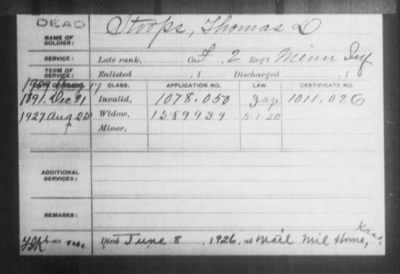 DEAD
NAME OF SOLDIER: Stoops, Thomas D
SERVICE: Late rank, Co F, 2 Reg't Minn Inf
TERM OF SERVICE: Enlisted , 1 Discharged , 1
CLASS. APPLICATION NO. LAW. CERTIFICATE NO.
1891 Dec 21 Invalid, 1078.050 1011.026
1927 Aug 23 Widow, 1589939 5-1-20
Minor,
ADDITIONAL SERVICES:
REMARKS:
Died June 8, 1926, at Natl Mil Home, Kans.